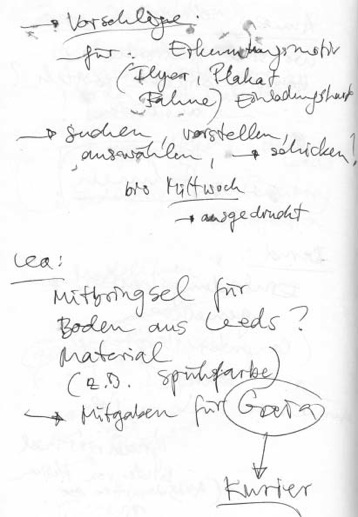 → Vorschläge:
für: Erkennungsmotiv
(Flyer, Plakat
Fahne) Einladungskart
→ suchen, vorstellen,
auswählen, → schicken!
bis Mittwoch
→ ausgedruckt
Lea:
Mitbringsel für
Boden aus Leeds?
Material
(z.B. Sprühfarbe)
→ Mitgaben für
Kurier